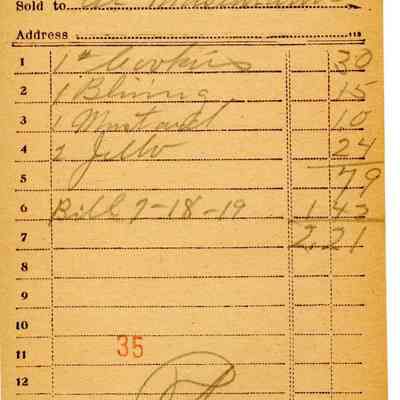 Sold to
Address
1 1# Cookies 30
2 1 Bluing 15
3 1 Mustard 10
4 2 Jello 24
5 79
6 Bill 7-18-19 1 42
7 2.21
8
9
10
11 35
12